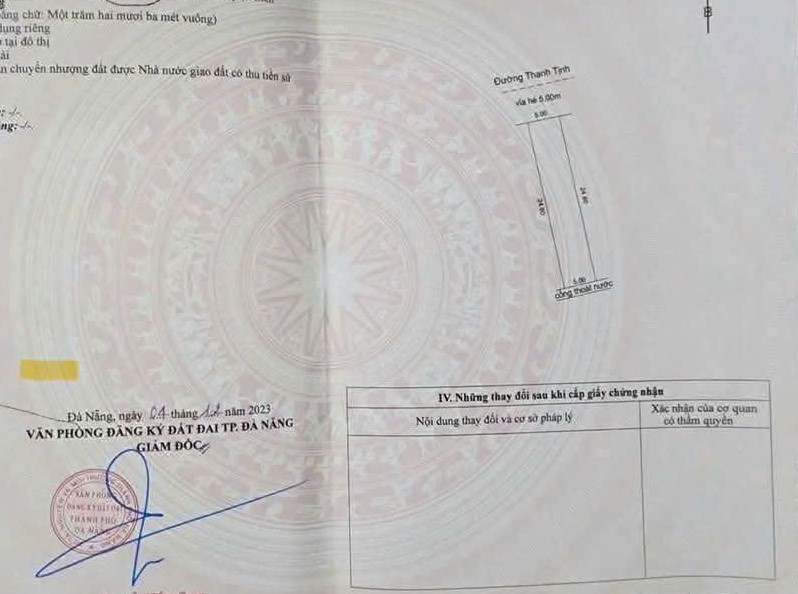 ằng chữ: Một trăm hai mươi ba mét vuông)
dụng riêng
tại đô thị
ài
n chuyển nhượng đất được Nhà nước giao đất có thu tiền sử
: -/-.
ng: -/-.
B
Đường Thanh Tịnh
vỉa hè 5.00m
5.00
24.60
24.60
5.00
cống thoát nước
Đà Nẵng, ngày 04 tháng 12 năm 2023
VĂN PHÒNG ĐĂNG KÝ ĐẤT ĐAI TP. ĐÀ NẴNG
GIÁM ĐỐC
VĂN PHÒNG
ĐĂNG KÝ ĐẤT ĐAI
THÀNH PHỐ
ĐÀ NẴNG
IV. Những thay đổi sau khi cấp giấy chứng nhận
Nội dung thay đổi và cơ sở pháp lý
Xác nhận của cơ quan
có thẩm quyền